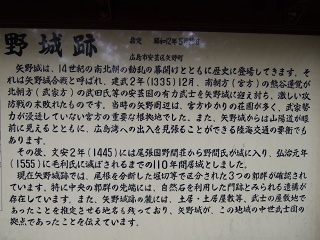 野城跡
広島市安芸区矢野町
矢野城は、14世紀の南北朝の動乱の幕開けとともに歴史に登場してきます。そ
れは矢野城合戦と呼ばれ、建武2年(1335)12月、南朝方(宮方)の熊谷蓮覚が
北朝方(武家方)の武田氏等の安芸国の有力武士を矢野城に迎え討ち、激しい攻
防戦の末敗れたものです。当時の矢野周辺は、宮方ゆかりの荘園が多く、武家勢
力が浸透していない宮方の重要な根拠地でした。また、矢野城からは山陽道が眼
前に見えるとともに、広島湾への出入を見張ることができる陸海交通の要衝でも
あります。
その後、文安2年(1445)には尾張国野間荘から野間氏が城に入り、弘治元年
(1555)に毛利氏に滅ぼされるまでの110年間居城としました。
現在矢野城跡では、尾根を分断した堀切等で区分された3つの郭群が確認され
ています。特に中央の郭群の先端には、自然石を利用した門跡とみられる遺構が
存在しています。また、矢野城跡の麓には、土居・土居屋敷等、武士の屋敷地で
あったことを推定させる地名も残っており、矢野城が、この地域の中世武士団の
拠点であったことを伝えています。